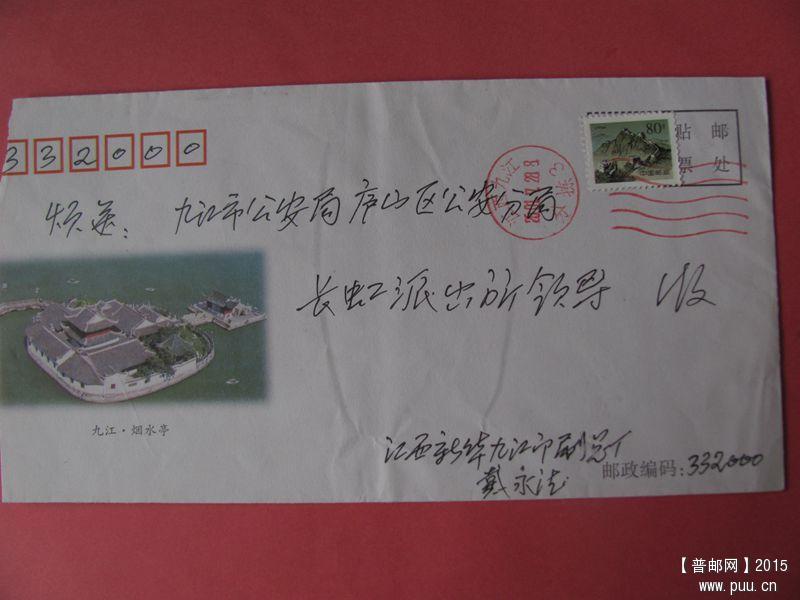 332000
80分
中国邮政
贴 邮
票 处
烦递： 九江市公安局庐山区公安分局
长虹派出所领导 收
九江·烟水亭
江西新华九江印刷总厂
戴永法
邮政编码：332000
【普邮网】2015
www.puu.cn